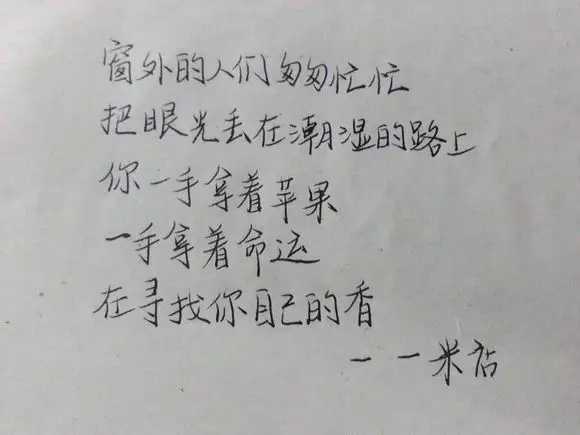 窗外的人们匆匆忙忙
把眼光丢在潮湿的路上
你一手拿着苹果
一手拿着命运
在寻找你自己的香
——米沾